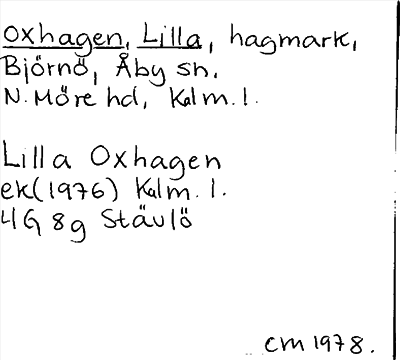 Oxhagen, Lilla, hagmark,
Björnö, Åby sn.
N. Möre hd, Kalm. l.
Lilla Oxhagen
ek(1976) Kalm. l.
4G 8g Stävlö
CM 1978.